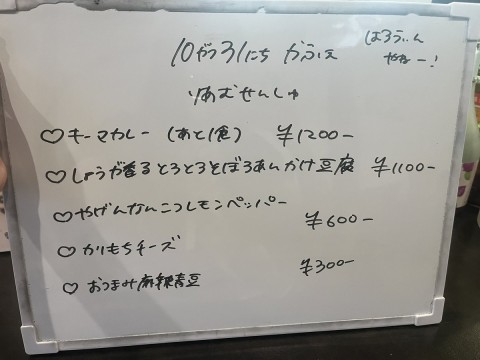 10がつ31にち かふぇ
はろうぃん
やねー!
りあむせんしゅ
♡キーマカレー (あと1食) ¥1200-
♡しょうが香るとろとろそぼろあんかけ豆腐 ¥1100-
♡やげんなんこつレモンペッパー ¥600-
♡かりもちチーズ ¥300-
♡おつまみ麻辣青豆